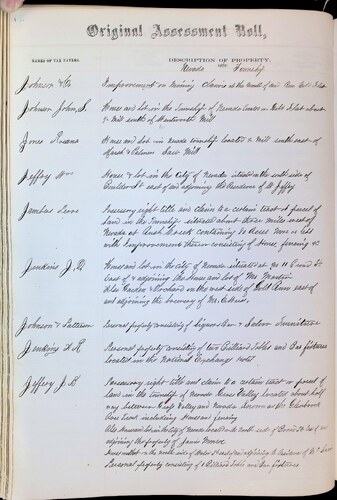 Original Assessment Roll,
NAMES OF TAX PAYERS.
DESCRIPTION OF PROPERTY.
Nevada Township
Johnson & Co Improvement on Mining Claims at the
Johnson John, S. House and Lot in the Township of Nevada located on Gold Flat about
½ mile south of Mill
Jones House and Lot in Nevada township located ½ mile south east of
Marsh & Palmer Saw Mill
Jeffey Wm House & Lot in the City of Nevada situated on the south side of
Boulder St east of and adjoining the Residence of
Possessory right title and claim to a certain tract or parcel of
land in the Township situated about three miles east of
Nevada at Rush Creek containing 50 acres more or less
with improvements thereon consisting of House, fencing &c
Jenkins J, House and Lot in the City of Nevada situated at No 11
East of & adjoining the House and Lot of Mr
Also Garden & Orchard on the west side of Gold Run east of
and adjoining the brewery of
Johnson & Patterson Personal property consisting of Liquors Bar & Saloon Furniture
Jenkins Personal property consisting of two Billiard Tables and Bar fixtures
located in the National Exchange Hotel
Jeffrey J. Possessory right title and claim to a certain tract or parcel of
land in the township of Nevada Grass Valley located about half
way between Grass Valley and Nevada known as the Glenbrook
Race Course including House and fencing
Also House and Lot in the City of Nevada located on the north side of Broad St East of and
adjoining the property of James Monroe
House and Lot on the north side of Water St east of and adjoining the Residence of
Personal property consisting of 2 Billiard Tables and Bar fixtures